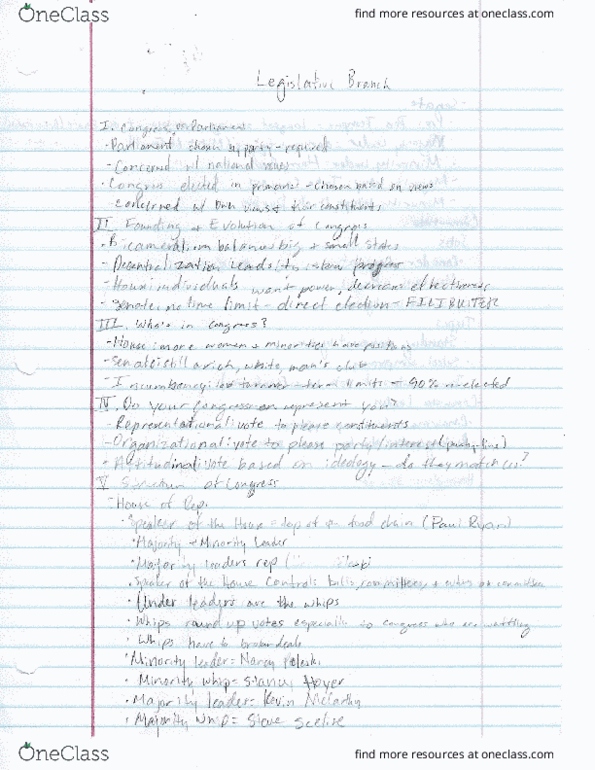 OneClass
find more resources at oneclass.com
Legislative Branch
I. Congress or Parliament
- Parliament chosen by party - required
- Concerned w/ national
- Congress elected in primaries - Chosen based on views
- concerned w/ own views + their constituents
II Founding + Evolution of Congress
- Bicameralism balances big + small states
- Decentralization leads to
- House: individuals want power, decreases effectiveness
- Senate: no time limit - direct election - FILIBUSTER
III. Who's in congress?
- House: more women + minorities have positions
- Senate: still a rich, white, man's club
- Incumbency: low turnover - term limits - 90% reelected
IV. Do your Congressmen represent you?
- Representational: vote to please constituents
- Organizational: vote to please party/interest
- Attitudinal: vote based on ideology - do they match us?
V Structure of Congress
- House of Rep.
- Speaker of the House = top of food chain (Paul Ryan)
- Majority + Minority Leader
- Majority leaders rep
- Speaker of the House Controls: bills, committees, +
- Under leaders are the whips
- Whips round up votes especially to congress who are
- Whips have to broker deals
- Minority leader = Nancy
- Minority whip = Hoyer
- Majority leader = Kevin McCarthy
- Majority Whip = Steve
OneClass
find more resources at oneclass.com